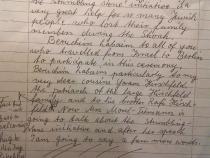 stumbling stone initiative. Its a
very great help for so many Jewish
people who lost their family
members during the Shoah.
Beruchim habaim to all of you
who travelled from Israel to Berlin
to participate in this ceremony.
Beruchim habaim particularly to my
very dear cousin Yoram Hirschfeld
the patriarch of the large Hirschfeld
family and to his brother Rafi Hirsch
feld. Now
is
going to talk about the Stumbling
Stone initiative and after he spoke
I am going to say a few more words.